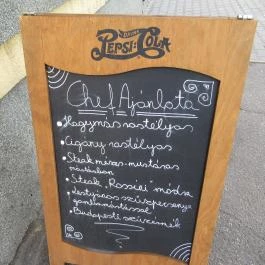 DRINK
PEPSI-COLA
Chef Ajánlata
Hagymás rostélyos
Cigány rostélyos
Steak mézes-mustáros
mártásban
Steak „Rossini” módra
Erdélyi
szűzpecsenye
gombamártással
Budapesti szűzérmék